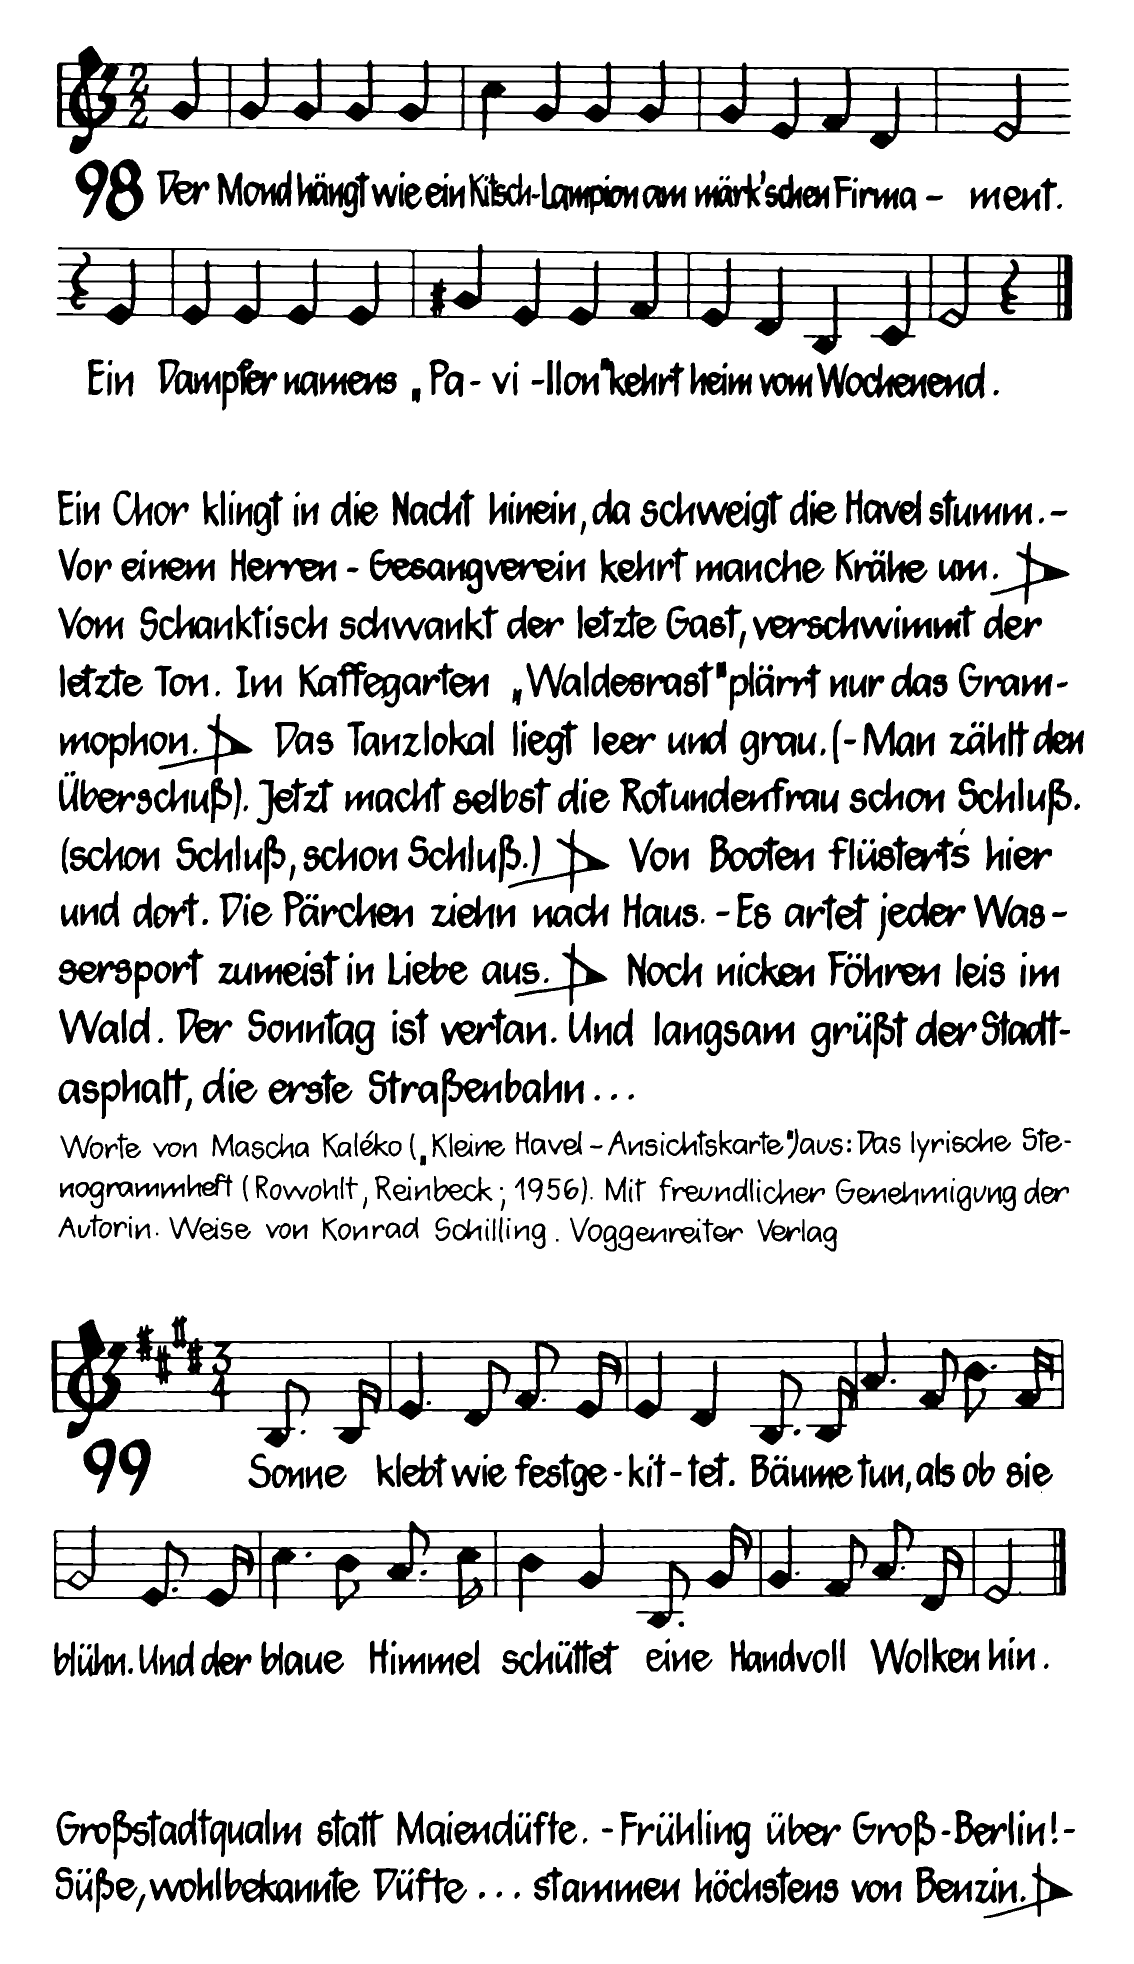 2
2
98 Der Mond hängt wie ein Kitsch-Lampion am märk'schen Firma - ment.
Ein Dampfer namens „Pa - vi - llon" kehrt heim vom Wochenend.
Ein Chor klingt in die Nacht hinein, da schweigt die Havel stumm. -
Vor einem Herren - Gesangverein kehrt manche Krähe um.
Vom Schanktisch schwankt der letzte Gast, verschwimmt der
letzte Ton. Im Kaffegarten „Waldesrast" plärrt nur das Gram-
mophon. Das Tanzlokal liegt leer und grau. (- Man zählt den
Überschuß). Jetzt macht selbst die Rotundenfrau schon Schluß.
(schon Schluß, schon Schluß.) Von Booten flüstert's hier
und dort. Die Pärchen ziehn nach Haus. - Es artet jeder Was-
sersport zumeist in Liebe aus. Noch nicken Föhren leis im
Wald. Der Sonntag ist vertan. Und langsam grüßt der Stadt-
asphalt, die erste Straßenbahn...
Worte von Mascha Kaléko („Kleine Havel - Ansichtskarte") aus: Das lyrische Ste-
nogrammheft (Rowohlt, Reinbeck; 1956). Mit freundlicher Genehmigung der
Autorin. Weise von Konrad Schilling. Voggenreiter Verlag
3
4
99 Sonne klebt wie festge - kit - tet. Bäume tun, als ob sie
blühn. Und der blaue Himmel schüttet eine Handvoll Wolken hin.
Großstadtqualm statt Maiendüfte. - Frühling über Groß - Berlin! -
Süße, wohlbekannte Düfte ... stammen höchstens von Benzin.